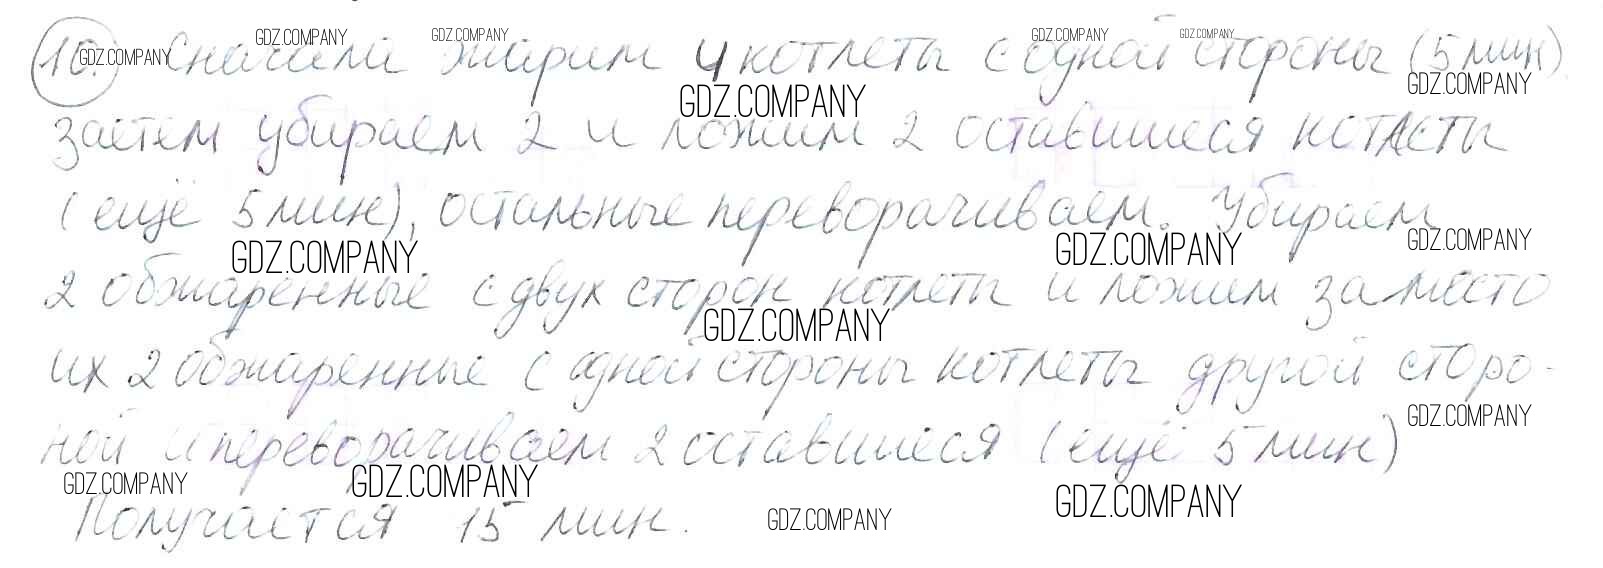 10. Сначала жарим 4 котлеты с одной стороны (5 мин)
затем убираем 2 и ложим 2 оставшиеся котлеты
(ещё 5 мин), остальные переворачиваем. Убираем
2 обжаренные с двух сторон котлеты и ложим заместо
их 2 обжаренные с одной стороны котлеты другой сторо-
ной и переворачиваем 2 оставшиеся (ещё 5 мин)
Получается 15 мин.
GDZ.COMPANY GDZ.COMPANY GDZ.COMPANY GDZ.COMPANY GDZ.COMPANY
GDZ.COMPANY GDZ.COMPANY
GDZ.COMPANY GDZ.COMPANY GDZ.COMPANY
GDZ.COMPANY
GDZ.COMPANY
GDZ.COMPANY GDZ.COMPANY GDZ.COMPANY
GDZ.COMPANY